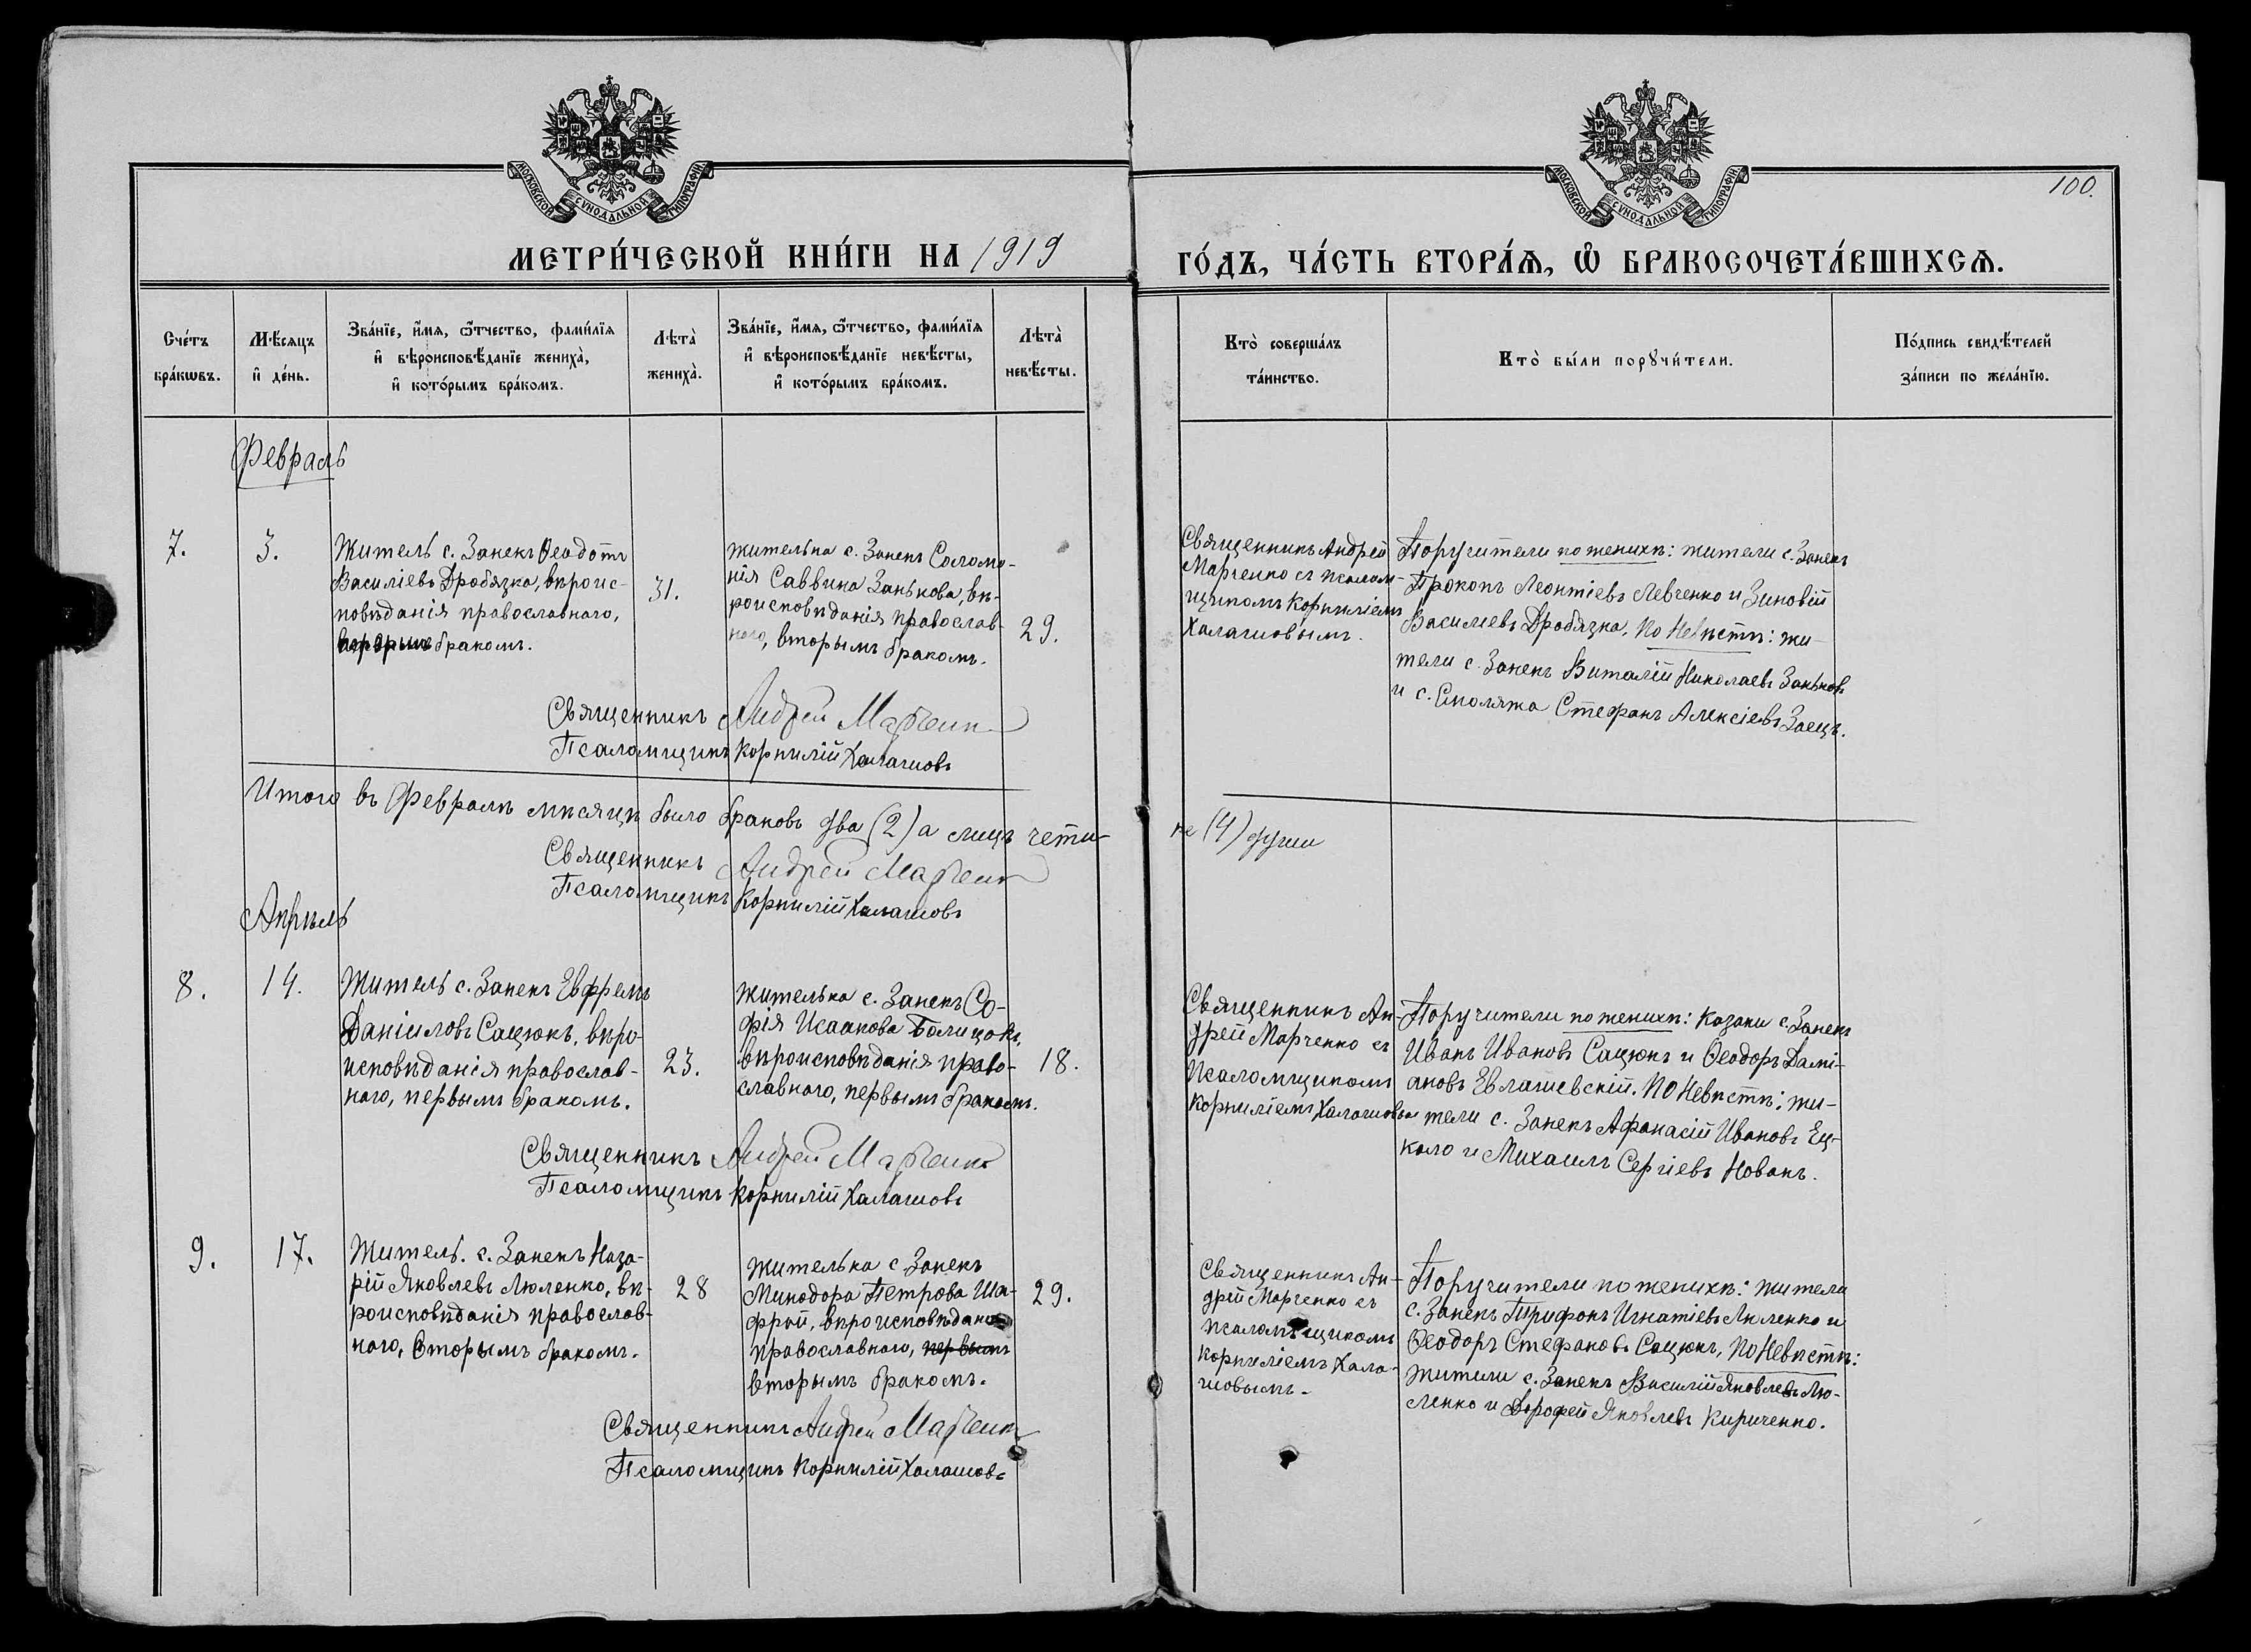 МОСКОВСКОЙ СѴНОДАЛЬНОЙ ТИПОГРАФІИ
МОСКОВСКОЙ СѴНОДАЛЬНОЙ ТИПОГРАФІИ
100.
МЕТРИ́ЧЕСКОЙ КНИ́ГИ НА 1919
ГО́ДЪ, ЧА́СТЬ ВТОРА́Ѧ, Ѡ҆ БРАКОСОЧЕТА́ВШИХСѦ.
Сче́тъ
бра́кѡвъ.
Мѣ́сяцъ
и҆ де́нь.
Зва́нїе, и҆́мѧ, ѻ҆́тчество, фами́лїѧ
и҆ вѣроисповѣ́данїе жениха̀,
и҆ кото́рымъ бра́комъ.
Лѣта̀
жениха̀.
Зва́нїе, и҆́мѧ, ѻ҆́тчество, фами́лїѧ
и҆ вѣроисповѣ́данїе невѣ́сты,
и҆ кото́рымъ бра́комъ.
Лѣта̀
невѣ́сты.
Кто̀ соверша́лъ
та́инство.
Кто̀ бы́ли порꙋчи́тели.
По́дпись свидѣ́телей
за́писи по жела́нїю.
Февраль
7.
3.
Житель с. Занекъ Ѳеодотъ
Василіевъ Дробязка, вѣроис-
повѣданія православнаго,
вторымъ бракомъ.
31.
жителька с. Занекъ Соломо-
нія Саввина Занькова, вѣ-
роисповѣданія православ-
наго, вторымъ бракомъ.
29.
Священникъ Андрей
Марченко съ псалом-
щикомъ Корниліемъ
Халашовымъ.
Поручители по женихѣ: жители с. Занекъ
Прокопъ Леонтіевъ Левченко и Зиновій
Василіевъ Дробязка, По Невѣстѣ: жи-
тели с. Занекъ Виталій Николаевъ Заньковъ
и с. Смоляжа Стефанъ Алексіевъ Заецъ.
Священникъ Андрей Марченко
Псаломщикъ Корнилій Халашовъ
Итого въ Февралѣ мѣсяцѣ было браковъ два (2) а лицъ чети-
ре (4) души
Священникъ Андрей Марченко
Псаломщикъ Корнилій Халашовъ
Апрѣль
8.
14.
Житель с. Занекъ Евфремъ
Даніиловъ Сацюкъ, вѣро-
исповѣданія православ-
наго, первымъ бракомъ.
23.
жителька с. Занекъ Со-
фія Исаакова
вѣроисповѣданія право-
славнаго, первымъ бракомъ.
18.
Священникъ Ан-
дрей Марченко съ
Псаломщикомъ
Корниліемъ Халашовы
Поручители по женихѣ: казаки с. Занекъ
Иванъ Ивановъ Сацюкъ и Ѳеодоръ Дамі-
ановъ Евлашевскій. По Невѣстѣ: жи-
тели с. Занекъ Афанасій Ивановъ Ец-
кало и Михаилъ Сергіевъ Новакъ.
Священникъ Андрей Марченко
Псаломщикъ Корнилій Халашовъ
9.
17.
Житель. с. Занекъ Наза-
рій Яковлевъ Люленко, вѣ-
роисповѣданія православ-
наго, вторымъ бракомъ.
28
жителька с Занекъ
Минодора Петрова Ша-
фрай, вѣроисповѣданія
православнаго, первымъ
вторымъ бракомъ.
29.
Священникъ Ан-
дрей Марченко съ
псаломщикомъ
Корниліемъ Хала-
шовымъ.
Поручители по женихѣ: жители
с. Занекъ Трифонъ Игнатіевъ Люленко и
Ѳеодоръ Стефановъ Сацюкъ, По Невѣстѣ:
жители с. Занекъ Василій Яковлевъ Лю-
ленко и Дорофей Яковлевъ Кириченко.
Священникъ Андрей Марченко
Псаломщикъ Корнилій Халашовъ